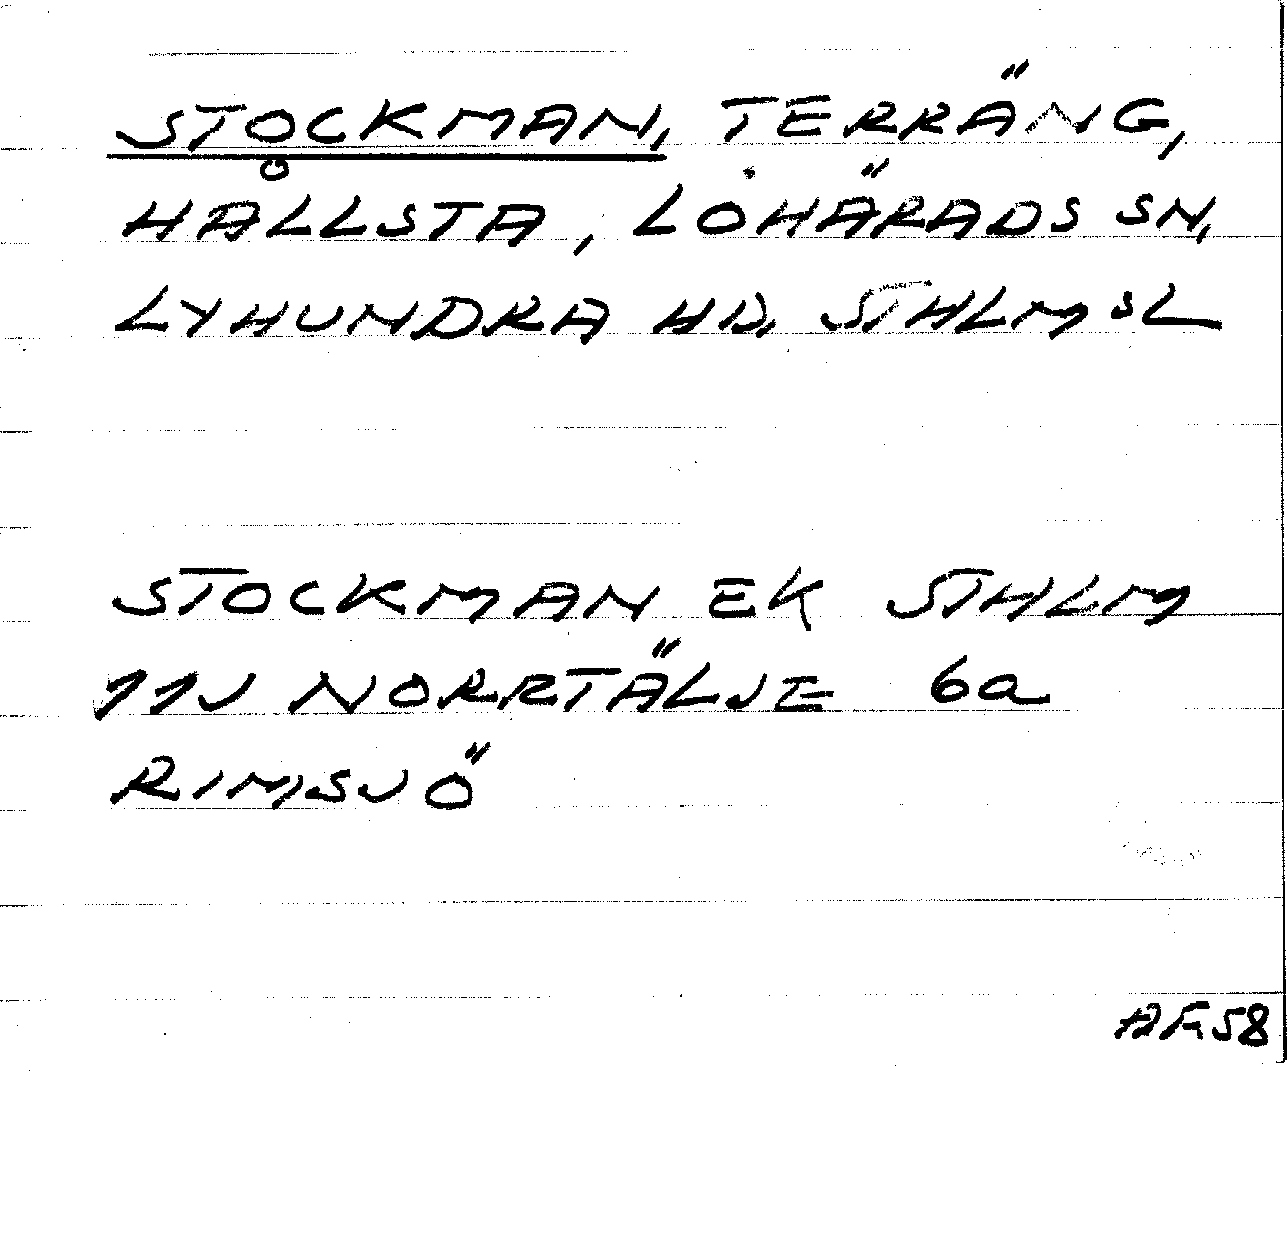 STOCKMAN, TERRÄNG,
HÅLLSTA, LOHÄRADS SN,
LYHUNDRA HD, STHLMSL
STOCKMAN EK STHLM
11J NORRTÄLJE 6a
RIMSJÖ
AF58